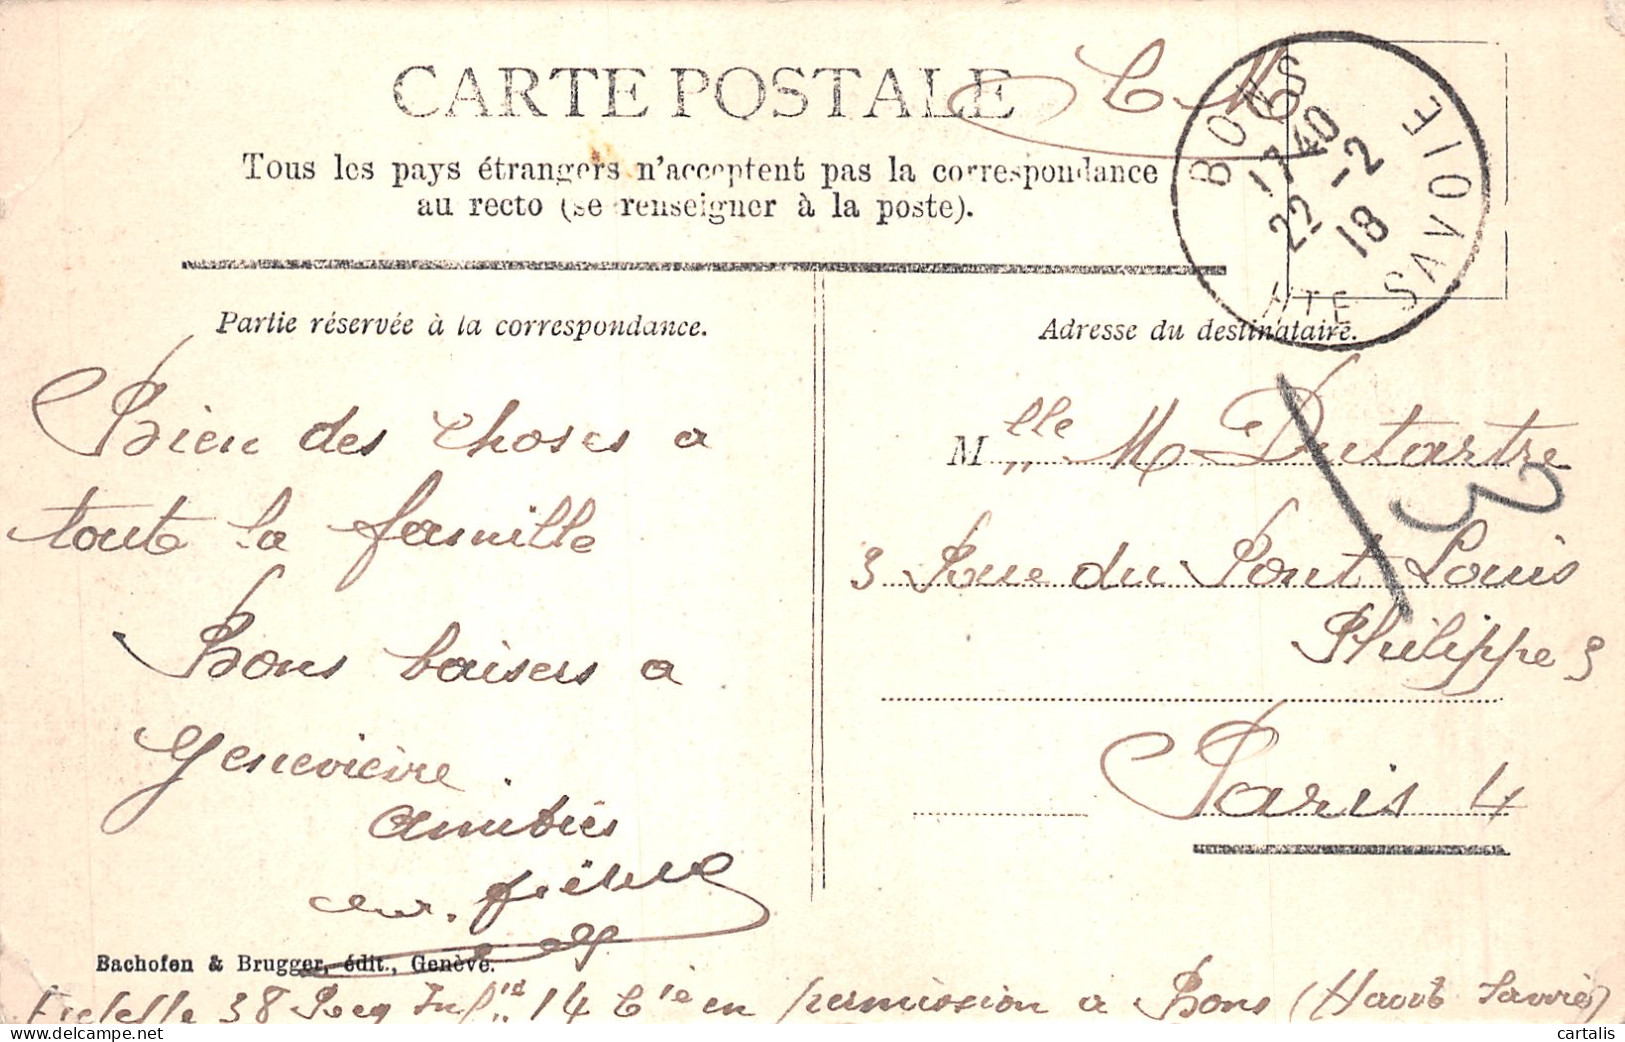 CARTE POSTALE
Tous les pays étrangers n'acceptent pas la correspondance
au recto (se renseigner à la poste).
BONS
17 40
22 - 2
18
HTE SAVOIE
Partie réservée à la correspondance.
Adresse du destinataire.
Bien des choses a
toute la famille
Bons baisers a
Genevieive
amitiés
Mlle M Dutartre
3 Rue du Pont Louis
Philippe 3
Paris 4
3
Bachofen & Brugger, édit., Genève.
38 Reg Infie 14 Cie en permission a Bons (Haute Savoie)
cartalis